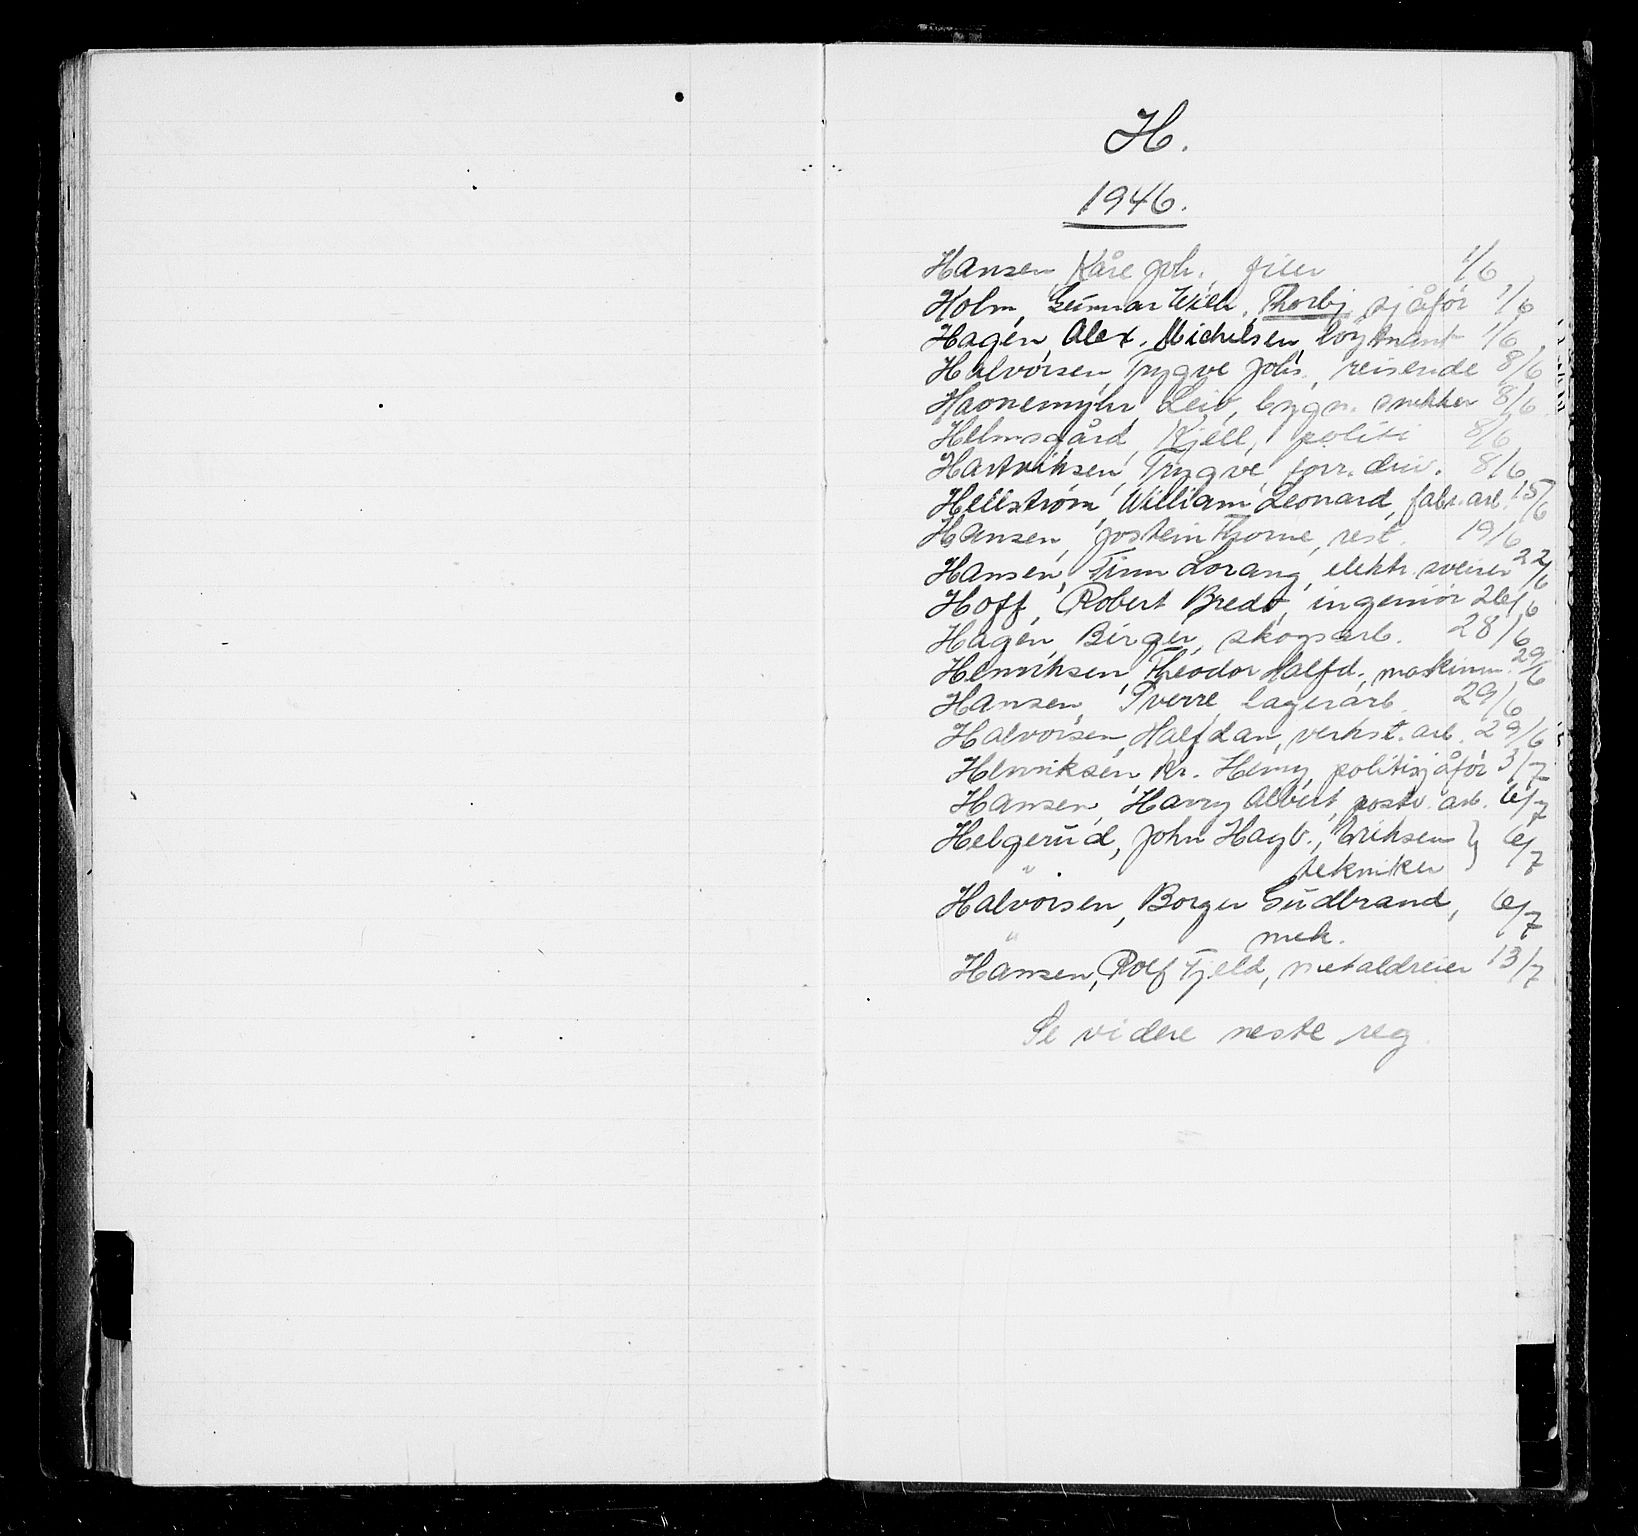 H.
1946.
Hansen, Kåre Joh., filer 1/6
Holm, Gunnar Wilh. Thorbj. sjåfør 1/6
Hagen, Alex. Michelsen, løytnant 1/6
Halvorsen, Trygve Johs., reisende 8/6
Leiv, bygn. snekker 8/6
Helmsgård, Kjell, politi 8/6
Hartviksen, Trygve, forr. driv. 8/6
Hellstrøm, William Leonard, fabr. arb. 15/6
Hansen, Jostein Thorne, rest. 19/6
Hansen, Finn Lorang, elektr. sveiser 22/6
Hoff, Robert Bredo, ingeniør 26/6
Hagen, Birger, skogsarb. 28/6
Henriksen, Theodor Halfd., maskinm. 29/6
Hansen, Sverre lagerarb. 29/6
Halvorsen, Halfdan, verkst. arb. 29/6
Henriksen, Kr. Henry, politisjåfør 3/7
Hansen, Harry Albert, postv. arb. 6/7
Helgerud, John Hagb., Eriksen } 6/7
" tekniker
Halvorsen, Borger Gudbrand, 6/7
" mek.
Hansen, Rolf Fjeld, metaldreier 13/7
Se videre neste reg.